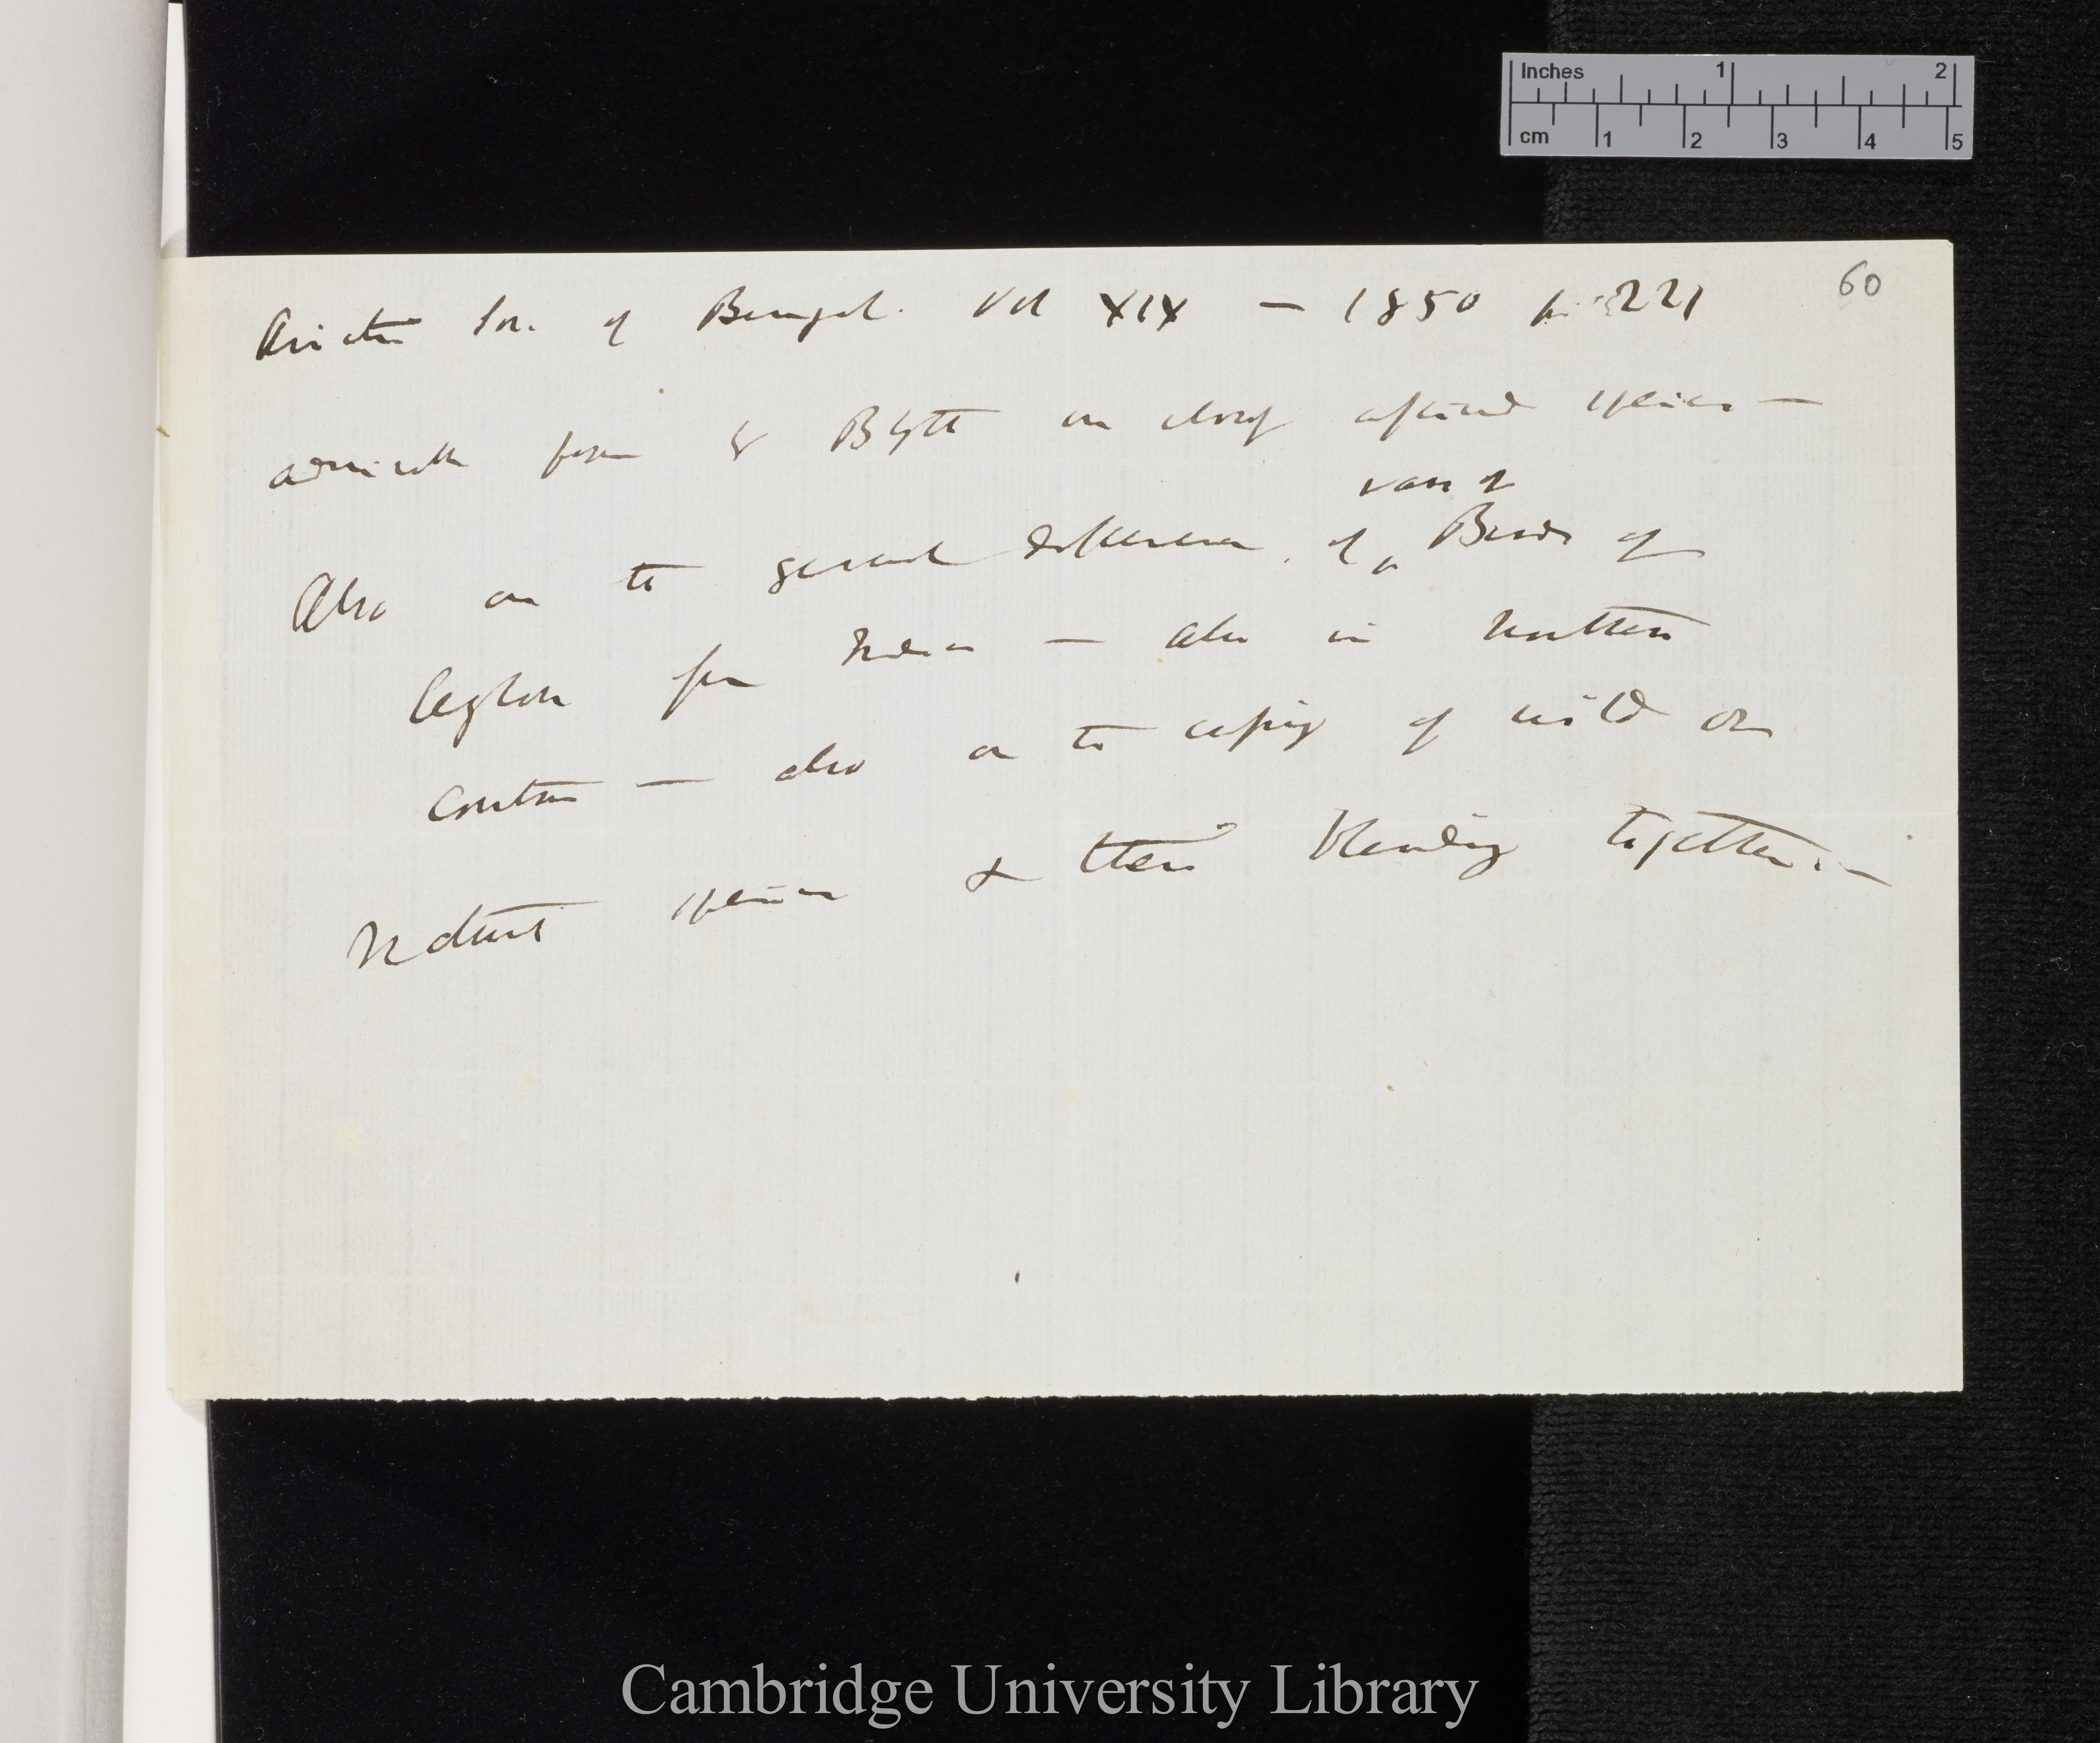 Inches 1 2
cm 1 2 3 4 5
60
Asiatic Soc. of Bengal. Vol XIX — 1850 p. 221
admirable paper by Blyth on closely allied species —
vars of
Also on the general difference of Birds of
Ceylon from India — also in Northern
— also on the of wild or
Natural species & their blending together. —
Cambridge University Library